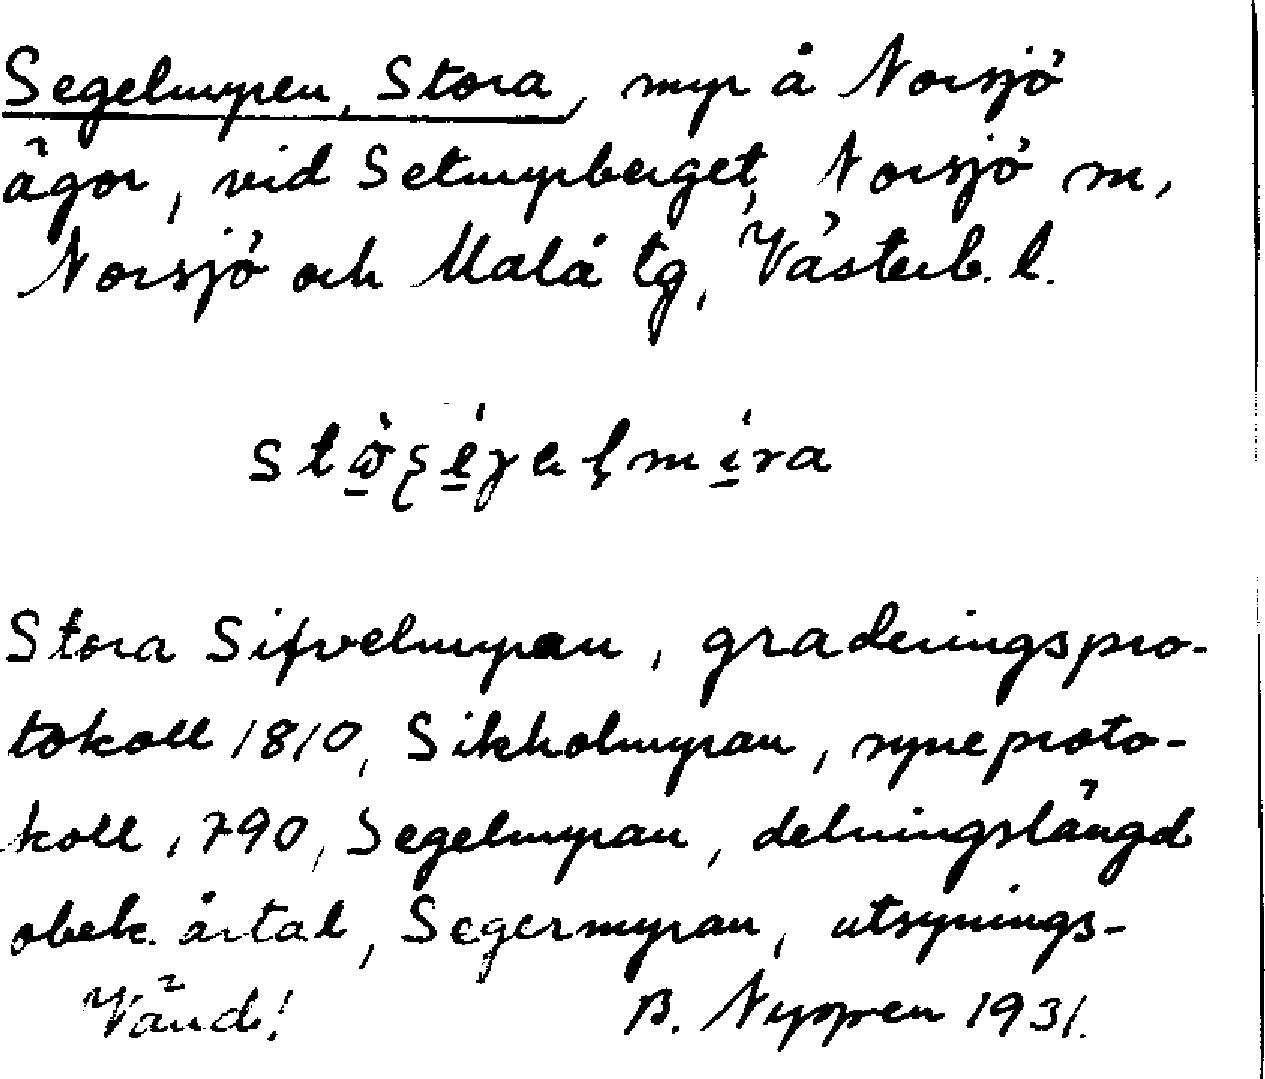 Segelmyren, Stora, myr å Norsjö
ägor, vid Setmyrberget, Norsjö sn,
Norsjö och Malå tg, Västerb. l.
Stora Sifvelmyran, graderingspro-
tokoll 1810, Sikholmyran, syneproto-
koll 1790, Segelmyran, delningslängd
obek. årtal, Segermyran, utsynings-
Vänd! B. Nyppen 1931.